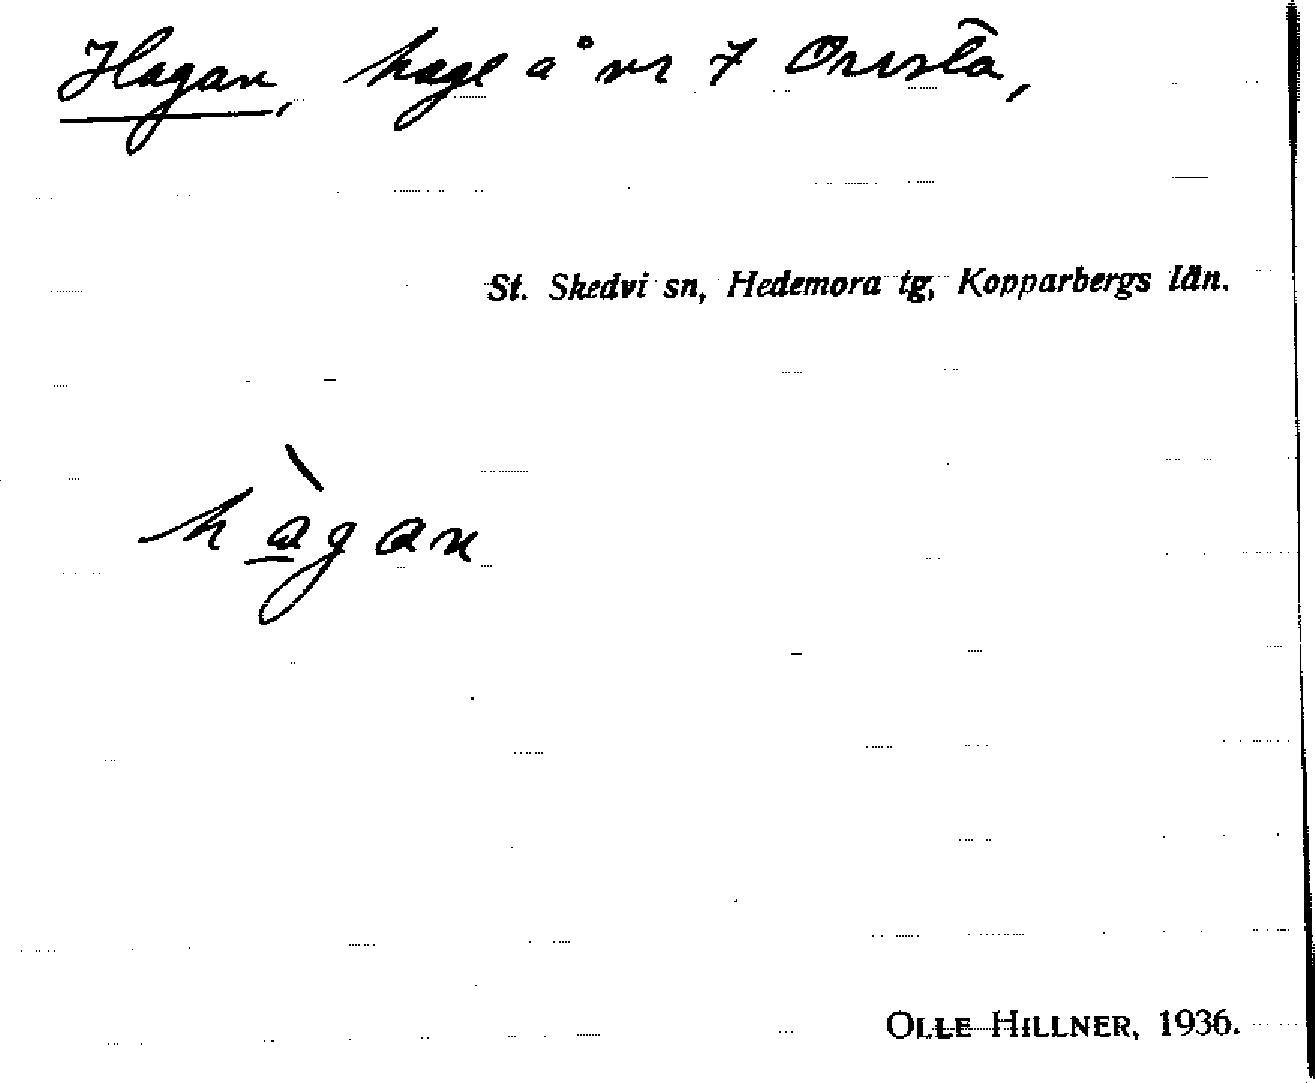 Hagan, hage å nr 7 Orvsta,
St. Skedvi sn, Hedemora tg, Kopparbergs län.
hàgan
OLLE HILLNER, 1936.